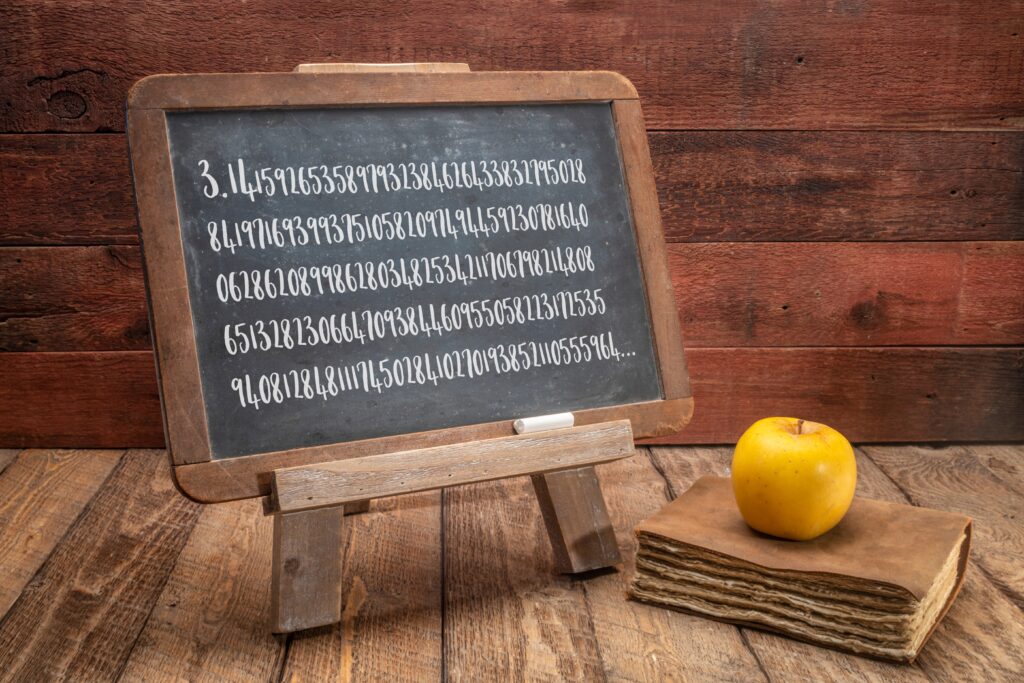 3.1415926535897932384626433832795028
8419716939937510582097494459230781640
0628620899862803482534211706798214808
651328230664709384460955058223172535
940812848111745028410270193852110555964...